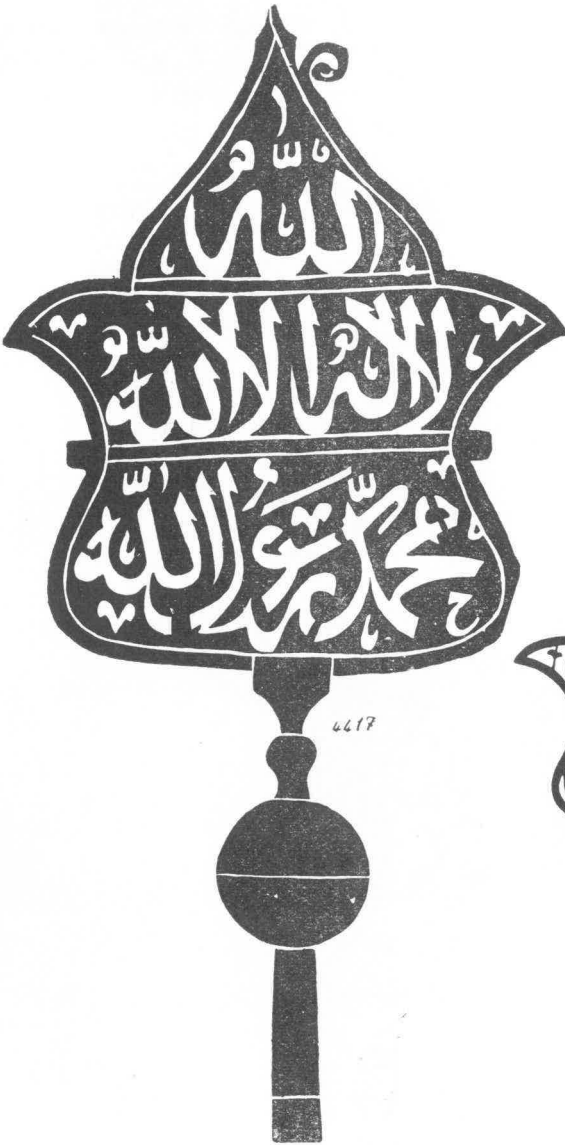 الله
لا اله الا الله
محمد رسول الله
4417